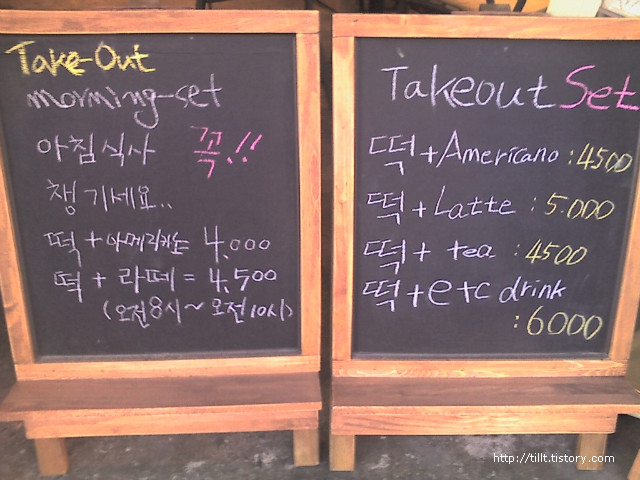 Take-Out
morning-set
아침식사 꼭!!
챙기세요..
떡 + 아메리카노 4,000
떡 + 라떼 = 4,500
(오전8시~오전10시)
Takeout Set
떡 + Americano : 4500
떡 + Latte : 5.000
떡 + tea : 4500
떡 + etc drink
: 6000
http://tillt.tistory.com